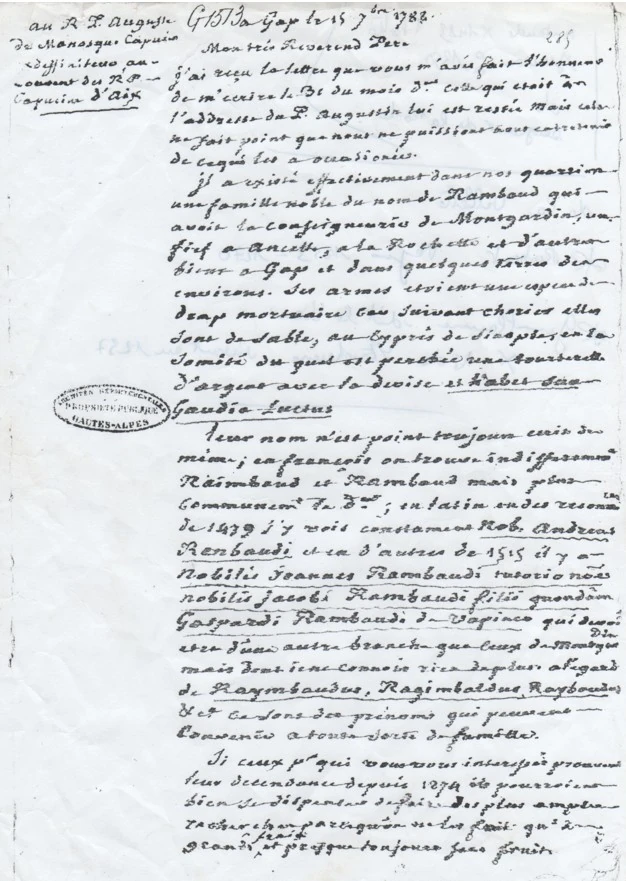 au R. P. Auguste
de Manosque Capucin
deffiniteur au
couvent des RP
Capucins d'Aix
G1513 a Gap le 15 7bre 1788.
285
Mon très Reverend Pere
j'ai reçu la lettre que vous m'avés fait l'honneur
de m'ecrire le 31 du mois dr celle qui etoit à
l'addresse du P. Augustin lui est restée mais cela
ne fait point que nous ne puissions vous entretenir
de ce qui les a occasionées.
jl a existé effectivement dans nos quartiers
une famille noble du nom de Rambaud qui
avoit la Conseigneurie de Montgardin, un
fief a Ancelle, a la Rochette et d'autres
biens a Gap et dans quelques terres des
environs. Ses armes etoient une espece de
drap mortuaire car suivant chorier elles
sont de sable, au Cyprès de Sinople, en la
somité du quel est perchée une tourterelle
d'argent avec la devise et habet sua
Gaudia luctus
ARCHIVES DEPARTEMENTALES
PROPRIÉTÉ PUBLIQUE
HAUTES-ALPES
leur nom n'est point toujours ecrit de
même; en françois on trouve indifferemt
Raimbaud et Rambaud mais plus
Communemt le dr; en latin en des reconn
de 1479 j'y vois constament Nob. Andreas
Renbaudi et en d'autres de 1515 il y a
Nobilis Joannes Rambaudi tutorio noē
nobilis jacobi Rambaudi filii quondam
Gaspardi Rambaudi de Vapinco qui devoit
etre d'une autre branche que ceux de Montgar
Din
mais dont je ne connois rien de plus. a l'egard
de Raymbaudus, Ragimbaldus, Rayboudus
&c. ce sont des prénoms qui peuvent
Convenir a toute sorte de famille.
Si ceux pr qui vous vous interessés prouvent
leur descendance depuis 1274 ils pourroient
bien se dispenser de faire des plus amples
recherches parce qu'on ne les fait qu'à
grands frais et presque toujours sans fruit.